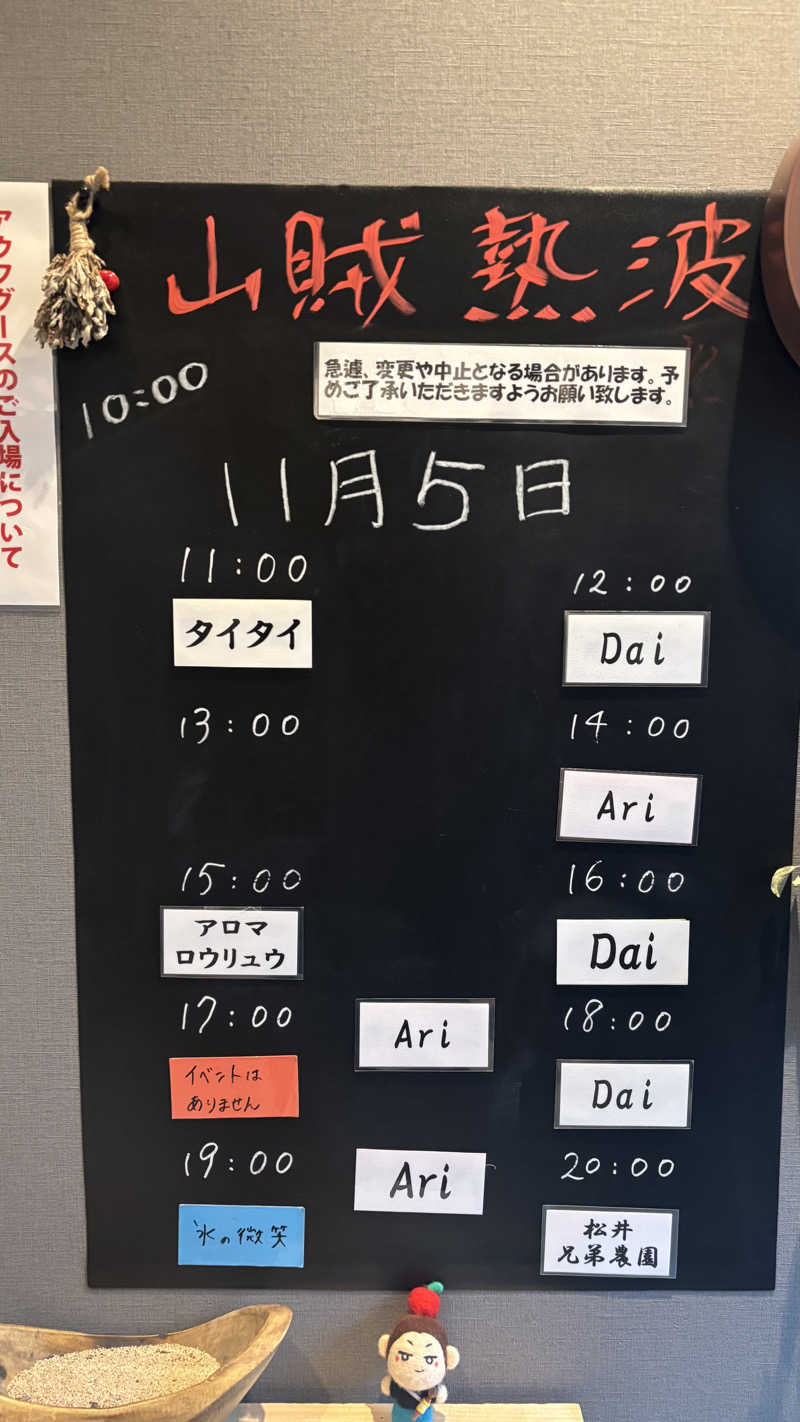 アウフグースのご入場について
山賊熱波
10:00
急遽、変更や中止となる場合があります。予
めご了承いただきますようお願い致します。
11月5日
11:00
タイタイ
12:00
Dai
13:00
14:00
Ari
15:00
アロマ
ロウリュウ
16:00
Dai
17:00
イベントは
ありません
Ari
18:00
Dai
19:00
氷の微笑
Ari
20:00
松井
兄弟農園